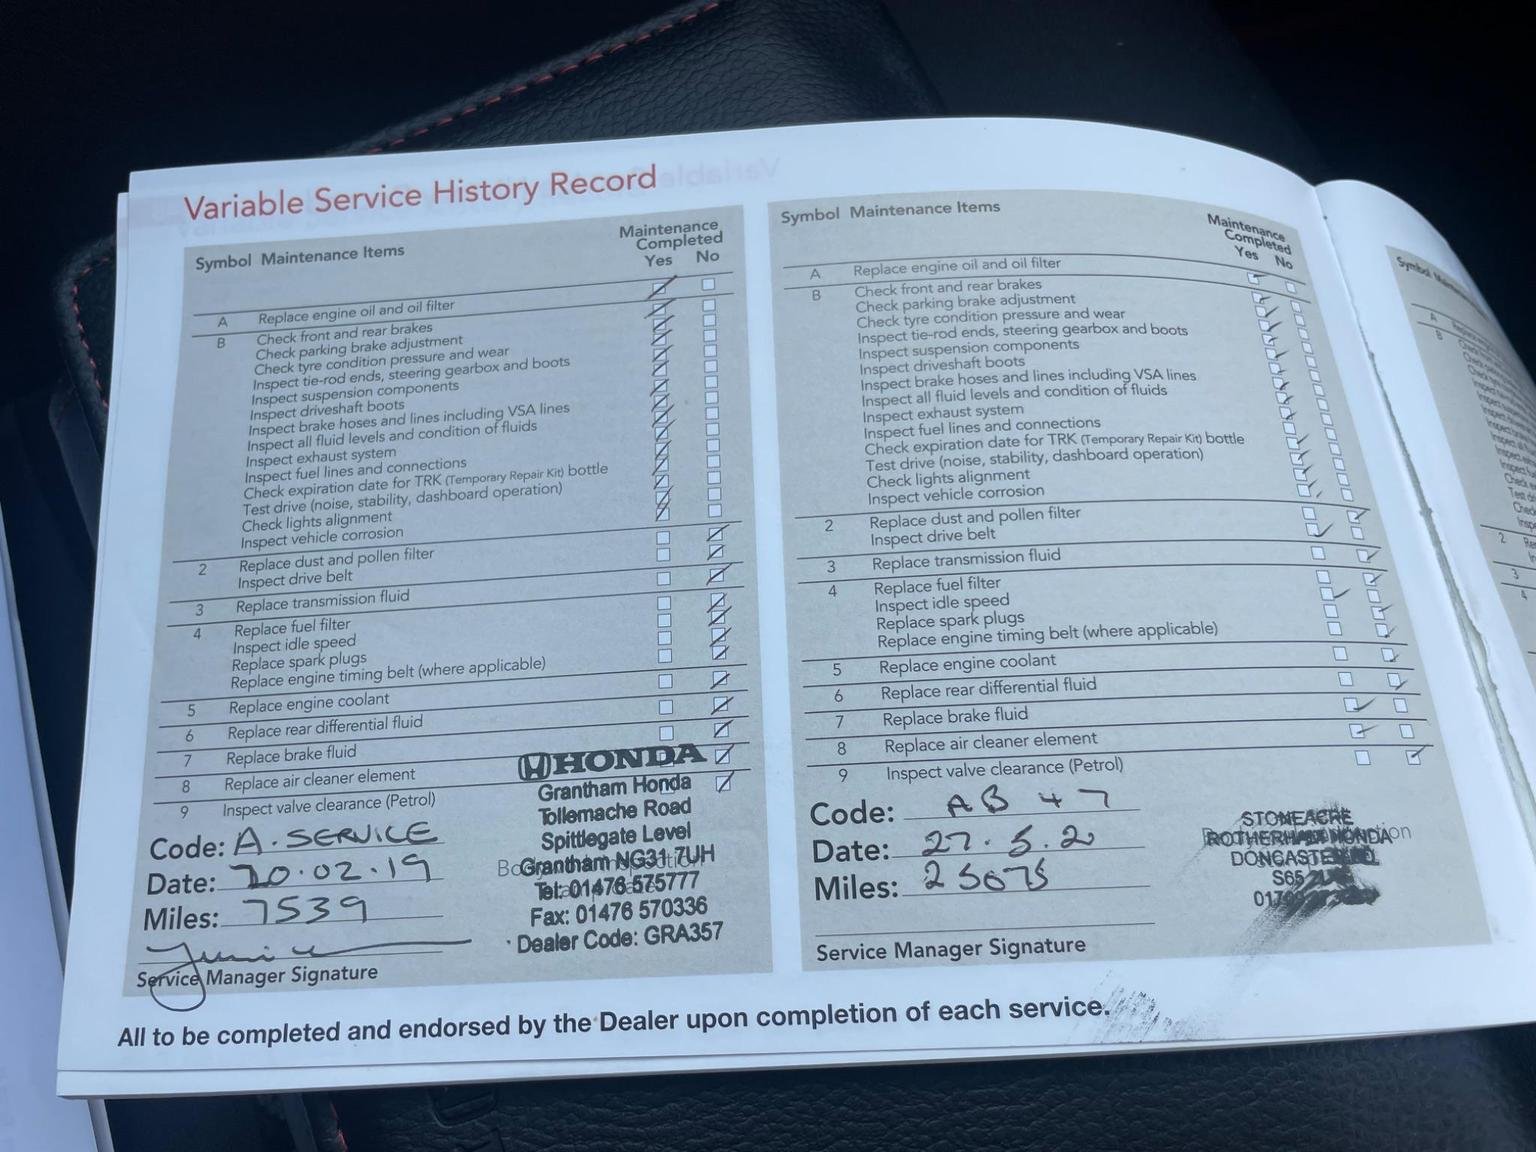 Variable Service History Record
Symbol Maintenance Items
Maintenance
Completed
Yes No
A Replace engine oil and oil filter
B Check front and rear brakes
Check parking brake adjustment
Check tyre condition pressure and wear
Inspect tie-rod ends, steering gearbox and boots
Inspect suspension components
Inspect driveshaft boots
Inspect brake hoses and lines including VSA lines
Inspect all fluid levels and condition of fluids
Inspect exhaust system
Inspect fuel lines and connections
Check expiration date for TRK (Temporary Repair Kit) bottle
Test drive (noise, stability, dashboard operation)
Check lights alignment
Inspect vehicle corrosion
2 Replace dust and pollen filter
Inspect drive belt
3 Replace transmission fluid
4 Replace fuel filter
Inspect idle speed
Replace spark plugs
Replace engine timing belt (where applicable)
5 Replace engine coolant
6 Replace rear differential fluid
7 Replace brake fluid
8 Replace air cleaner element
9 Inspect valve clearance (Petrol)
HONDA
Grantham Honda
Tollemache Road
Spittlegate Level
Grantham NG31 7UH
Tel: 01476 575777
Fax: 01476 570336
Dealer Code: GRA357
Code: A. SERVICE
Date: 20.02.19
Miles: 7539
Service Manager Signature
Symbol Maintenance Items
Maintenance
Completed
Yes No
A Replace engine oil and oil filter
B Check front and rear brakes
Check parking brake adjustment
Check tyre condition pressure and wear
Inspect tie-rod ends, steering gearbox and boots
Inspect suspension components
Inspect driveshaft boots
Inspect brake hoses and lines including VSA lines
Inspect all fluid levels and condition of fluids
Inspect exhaust system
Inspect fuel lines and connections
Check expiration date for TRK (Temporary Repair Kit) bottle
Test drive (noise, stability, dashboard operation)
Check lights alignment
Inspect vehicle corrosion
2 Replace dust and pollen filter
Inspect drive belt
3 Replace transmission fluid
4 Replace fuel filter
Inspect idle speed
Replace spark plugs
Replace engine timing belt (where applicable)
5 Replace engine coolant
6 Replace rear differential fluid
7 Replace brake fluid
8 Replace air cleaner element
9 Inspect valve clearance (Petrol)
Code: AB 47
Date: 27.5.20
Miles: 25075
STONEACRE
ROTHERHAM HONDA
DONCASTER
S65
Service Manager Signature
All to be completed and endorsed by the Dealer upon completion of each service.